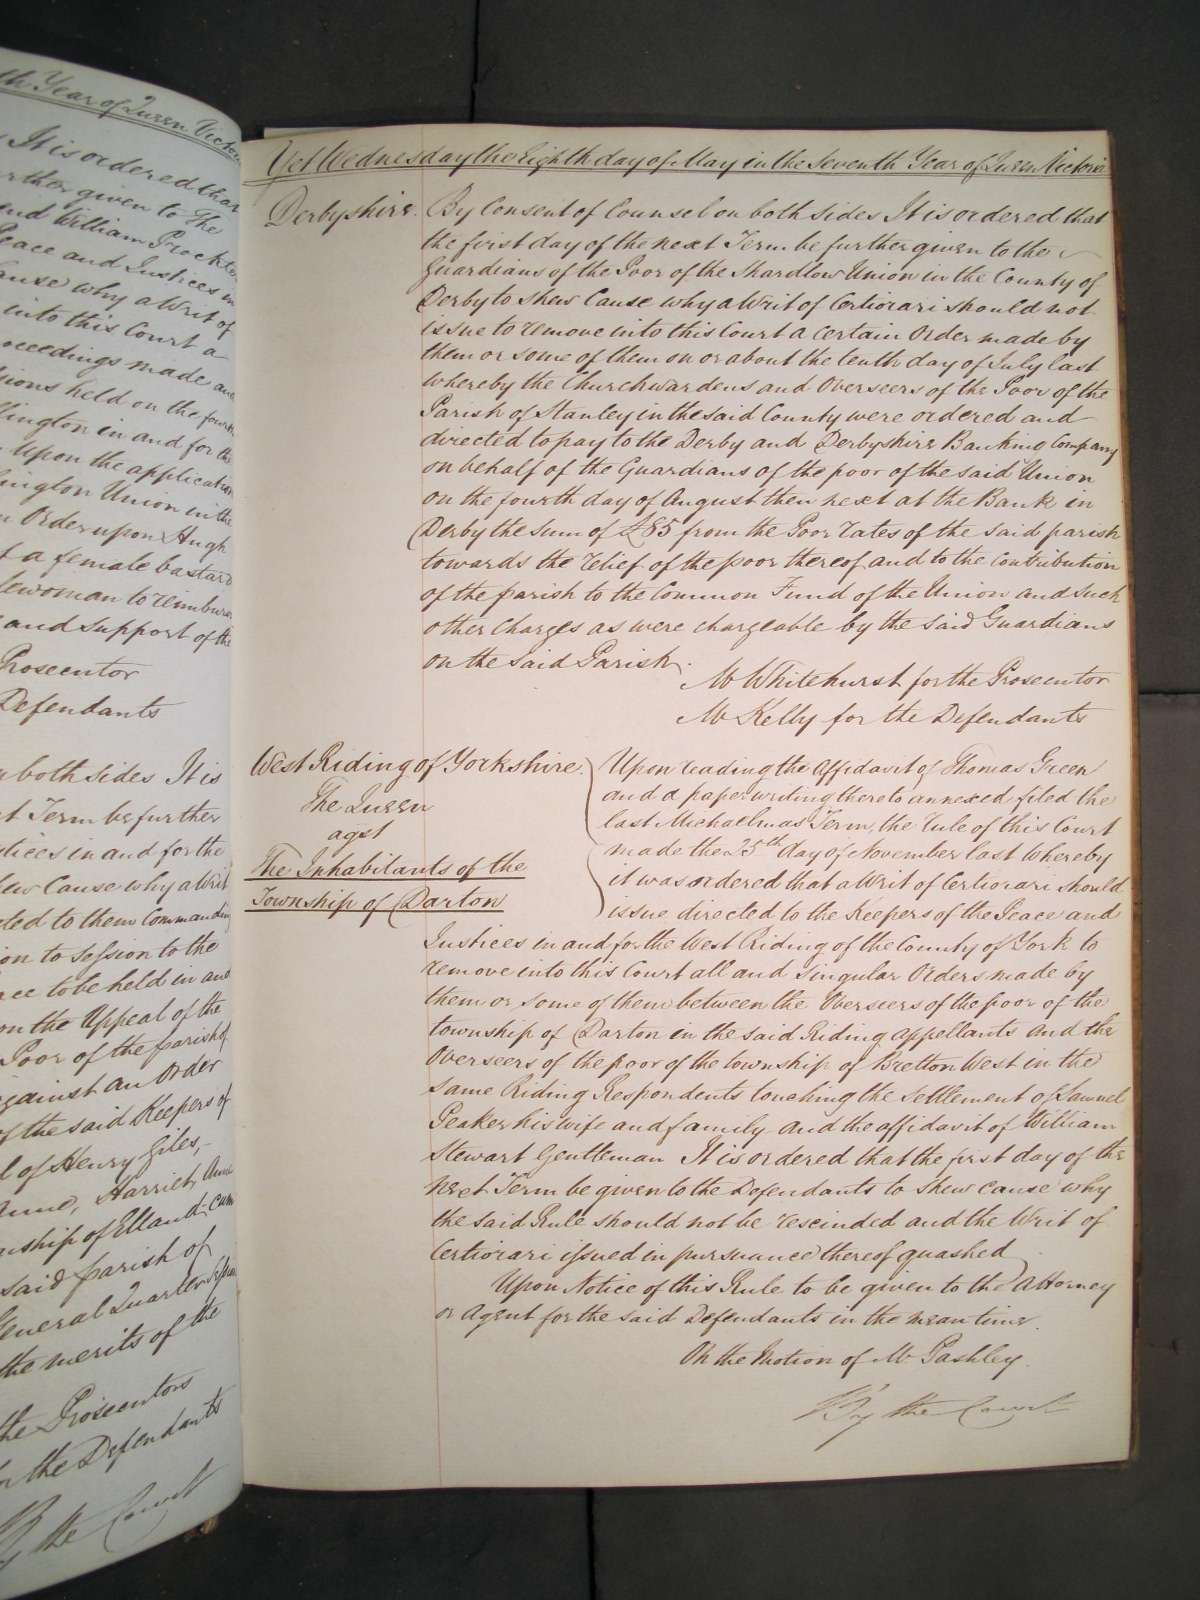 th Year of Queen Victori
It is ordered that
rther given to The
end William Prockte
Peace and Justices in
ause why a Writ of
into this Court a
oceedings made and
sions held on the fourth
llington in and for the
Upon the application
lington Union in the
n Order upon Hugh
f a female bastard
lewoman to reimburse
and support of the
Prosecutor
Defendants
n both sides It is
t Term be further
stices in and for the
hew Cause why a Writ
cted to them Commanding
ion to Session to the
ace to be held in and
on the Appeal of the
Poor of the parish of
gainst an Order
of the said Keepers of
l of Henry Giles,
Anne, Harriet, Ann
nship of Elland cum
said parish of
General Quarter Session
the merits of the
the Prosecutors
for the Defendants
By the Court
Yet Wednesday the Eighth day of May in the Seventh Year of Queen Victoria
Derbyshire. By Consent of Counsel on both Sides It is ordered that
the first day of the next Term be further given to the
Guardians of the Poor of the Shardlow Union in the County of
Derby to shew Cause why a Writ of Certiorari should not
issue to remove into this Court a certain Order made by
them or some of them on or about the tenth day of July last
whereby the Churchwardens and Overseers of the Poor of the
Parish of Stanley in the said County were ordered and
directed to pay to the Derby and Derbyshire Banking Company
on behalf of the Guardians of the poor of the said Union
on the fourth day of August then next at the Bank in
Derby the Sum of £85 from the Poor rates of the said parish
towards the relief of the poor thereof and to the contribution
of the parish to the Common Fund of the Union and such
other charges as were chargeable by the said Guardians
on the said Parish.
Mr Whitehurst for the Prosecutor
Mr Kelly for the Defendants
West Riding of Yorkshire.
The Queen
agst
The Inhabitants of the
Township of Darton
Upon reading the Affidavit of Thomas Green
and a paper writing thereto annexed filed the
last Michaelmas Term, the rule of this Court
made the 25th day of November last whereby
it was ordered that a Writ of Certiorari should
issue directed to the Keepers of the Peace and
Justices in and for the West Riding of the County of York to
remove into this Court all and singular Orders made by
them or some of them between the Overseers of the poor of the
township of Darton in the said Riding appellants and the
Overseers of the poor of the township of Bretton West in the
same Riding Respondents touching the settlement of Samuel
Peaker his wife and family and the affidavit of William
Stewart Gentleman It is ordered that the first day of the
next Term be given to the Defendants to shew cause why
the said Rule should not be rescinded and the Writ of
Certiorari issued in pursuance thereof quashed
Upon Notice of this Rule to be given to the Attorney
or Agent for the said Defendants in the mean time.
On the Motion of Mr Pashley.
By the Court